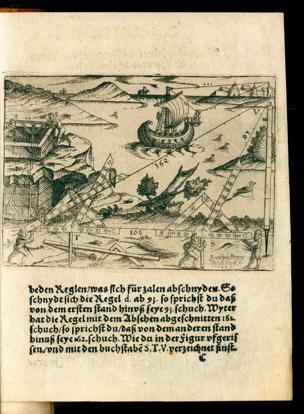 162
93
T
100
S
beden Reglen/was sich für zalen abschnyden. So
schnydt sich die Regel d. ab 93. so sprichst du daß
von dem ersten stand hinuß seye 93. schuch. Wyter
hat die Regel mit dem Absehen abgeschnitten 162.
schuch/so sprichst du/daß von dem anderen stand
hinuß seye 162. schuch. Wie du in der Figur vgeris
sen/vnd mit den buchstabē S.T.V. verzeichnet sinst.
C